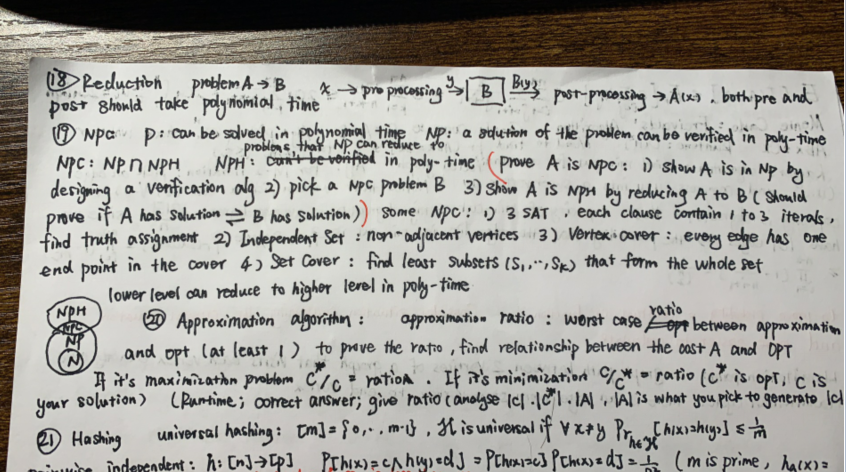 (18) Reduction problem A → B x → pre processing y→ [B] B(y)→ post-processing → A(x). both pre and
post should take polynomial time
(19) NPC P: can be solved in polynomial time NP: a solution of the problem can be verified in poly-time
problems that NP can reduce to
NPC: NP ∩ NPH NPH: can't be verified in poly-time (prove A is NPC: 1) show A is in NP by
designing a verification alg 2) pick a NPC problem B 3) show A is NPH by reducing A to B (should
prove if A has solution ⇌ B has solution)) some NPC: 1) 3 SAT. each clause contain 1 to 3 iterals,
find truth assignment 2) Independent Set: non-adjacent vertices 3) Vertex cover: every edge has one
end point in the cover 4) Set Cover: find least subsets (S1,..,Sk) that form the whole set
lower level can reduce to higher level in poly-time
NPH
NPC
NP
N
(20) Approximation algorithm: approximation ratio: worst case ratio between approximation
and opt (at least 1) to prove the ratio, find relationship between the cost A and OPT
If it's maximization problem C*/C = ratio. If it's minimization C/C* = ratio (C* is OPT, C is
your solution) (Runtime; correct answer; give ratio (analyse |C|.|C*|.|A|, |A| is what you pick to generate |C|
(21) Hashing universal hashing: [m]={0,..,m-1}, H is universal if ∀x≠y Pr h∈H [h(x)=h(y)] ≤ 1/m
independent: h:[n]→[p] P[h(x)=c∧h(y)=d] = P[h(x)=c]P[h(x)=d]= (m is prime, ha(x)=